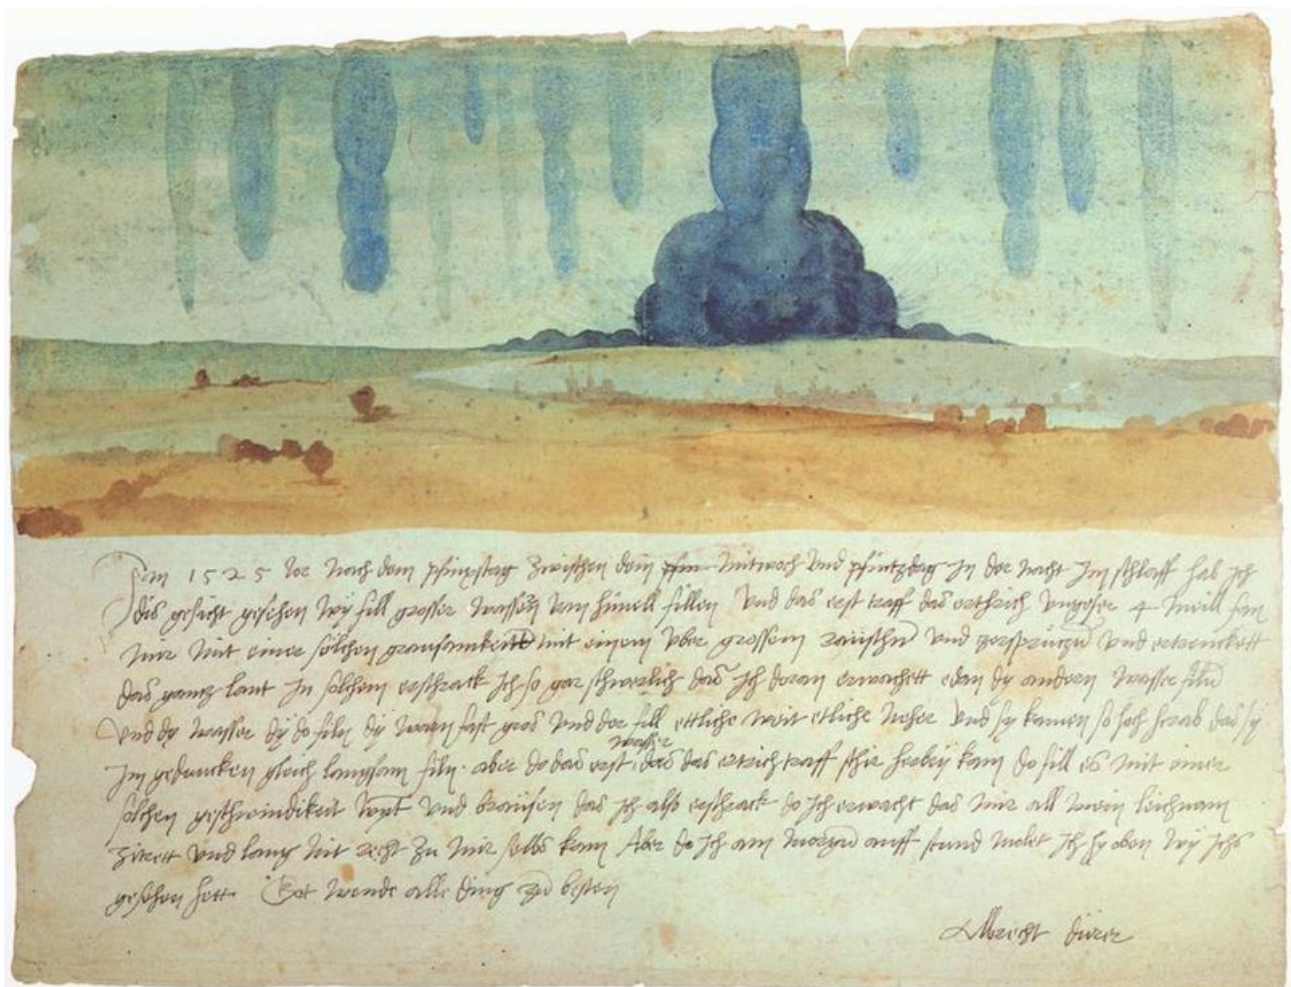 Im 1525 Jor nach dem pfinxstag zwischen dem pfin Mitwoch und pfintzdag in der nacht im schlaff hab ich
dis gesicht gesehen wy fill grosser wassern vom himell fillen Und das erst traff das erthrich ungefer 4 meill fan
mir mit einer solchen grausamkeitt mit einem uber grossem raüschn und zersprützn und ertrenckett
das gantz lant In solchem erschrack ich so gar schwerlich das ich doran erwachett edan dy andern wasser filn
Und dy wasser dy do filn dy warn fast gros und der fill ettliche weit etliche neher und sy kamen so hoch herab das sy
im gedancken gleich langsam filn. aber do das erst wasser das das ertrich traff schir herbey kam do fill es mit einer
solchen geschwindikeit wynt und braüsen das ich also erschrack do ich erwacht das mir all mein leichnam
zitrett und lang nit recht zu mir selbs kam Aber do ich am morgn auff stund molet ich hy oben wy ichs
gesehen hett. Got wende alle ding zu besten
Albrecht dürer